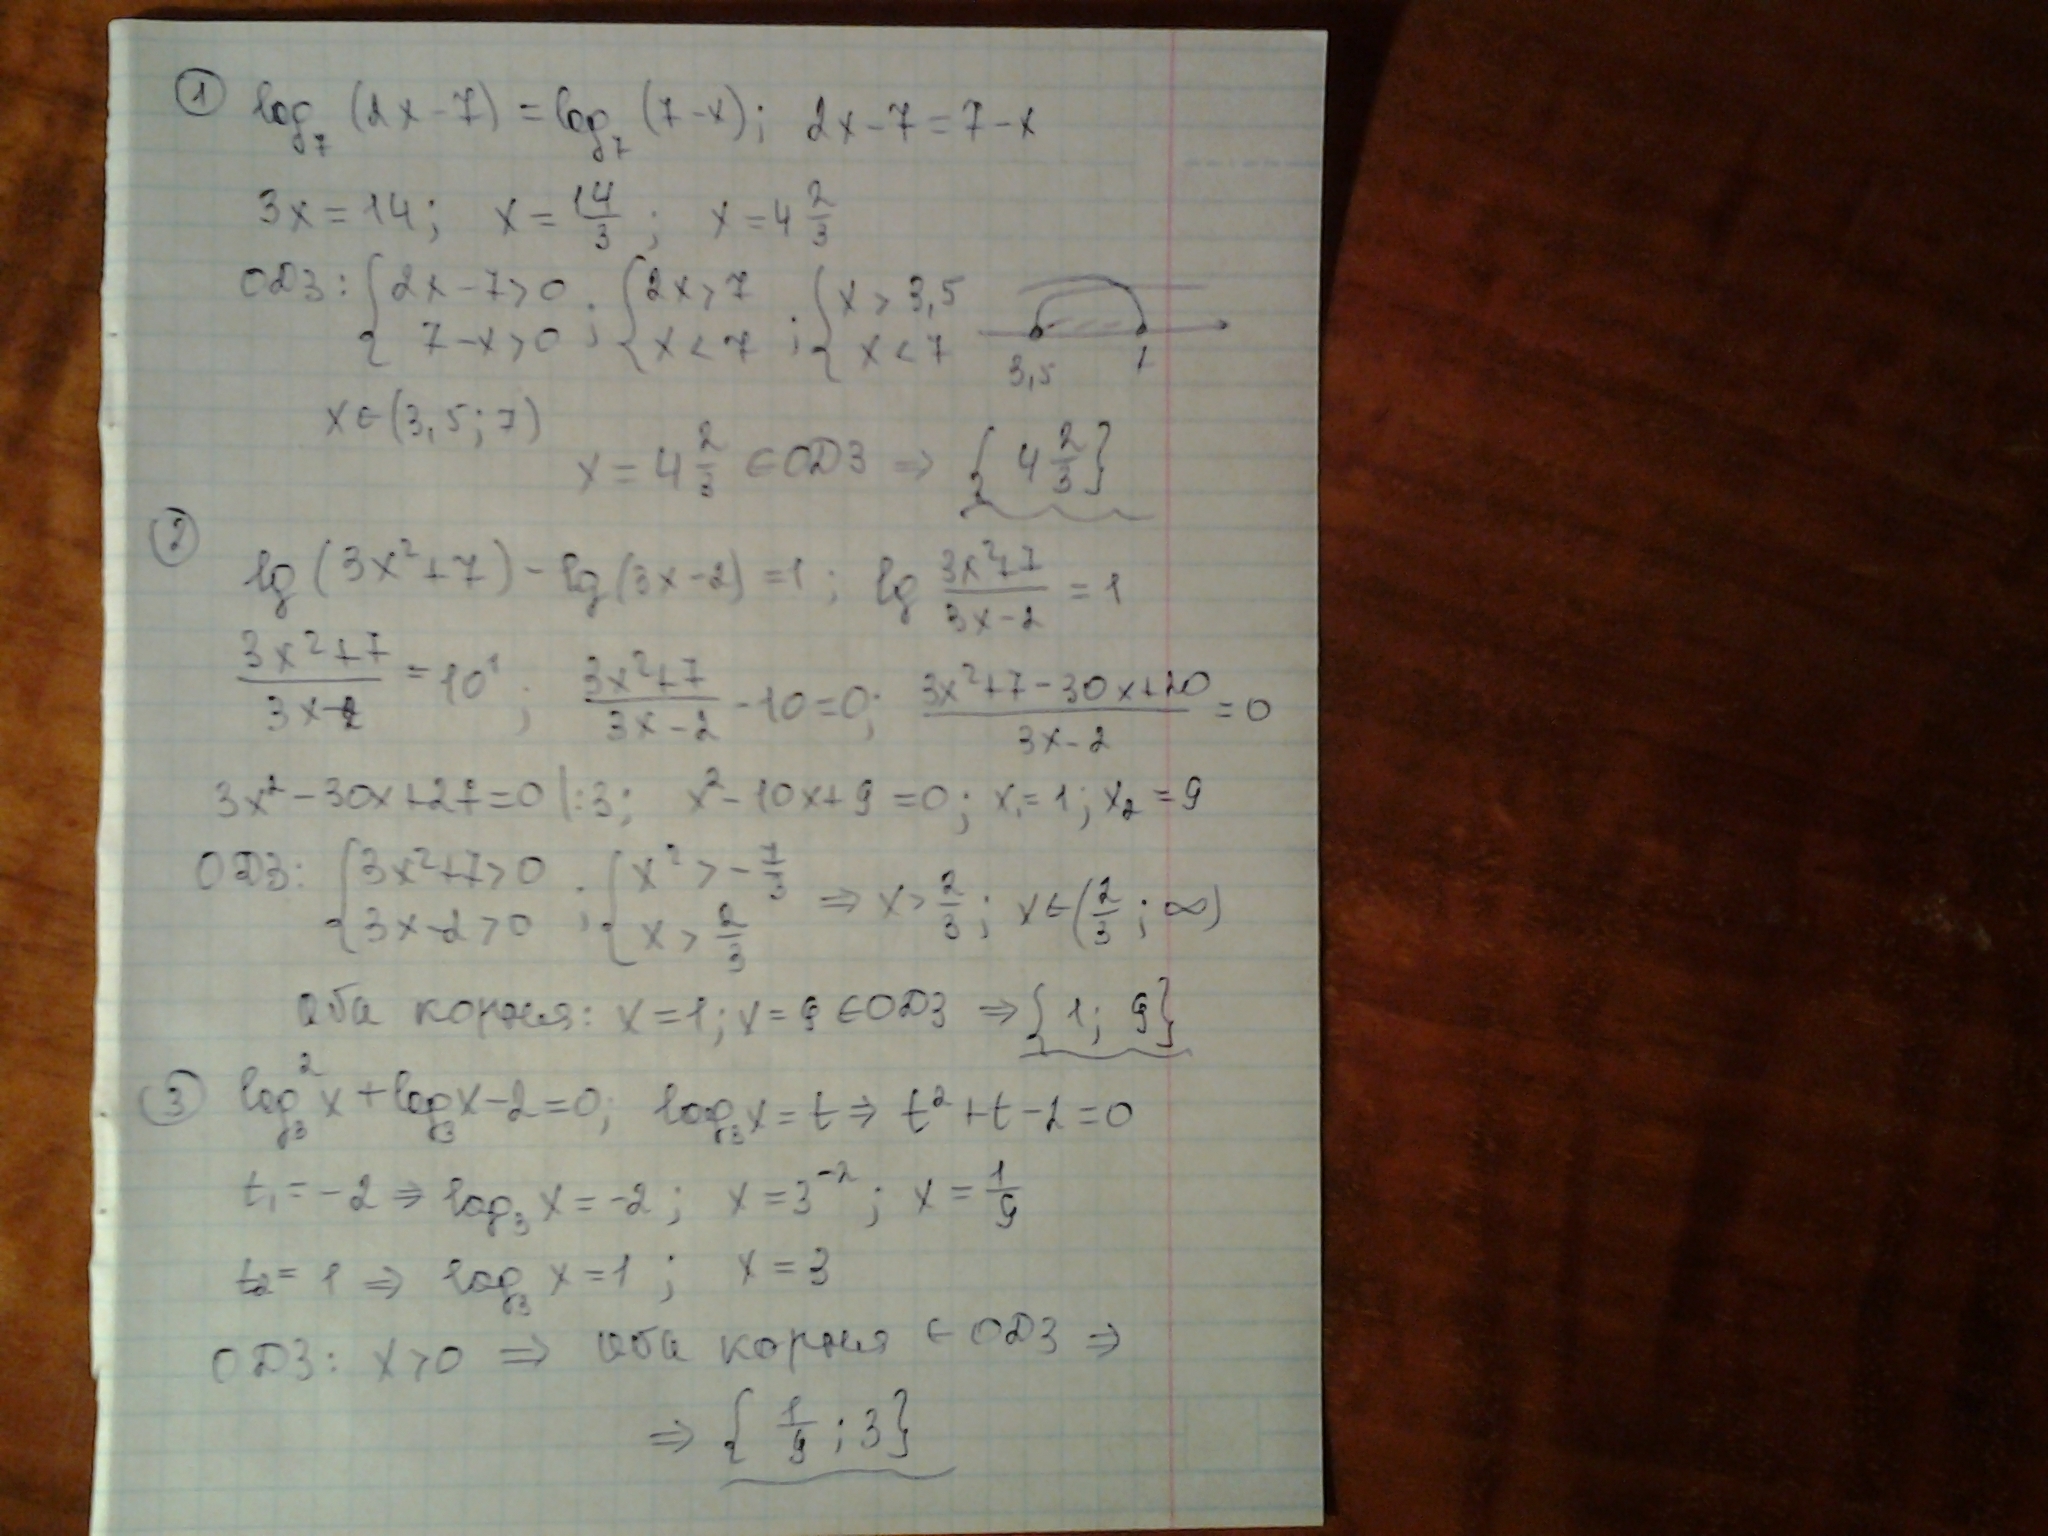 ① log₇ (2x-7) = log₇ (7-x); 2x-7=7-x
3x=14; x=14/3; x=4 2/3
ОДЗ: { 2x-7>0 7-x>0 ; { 2x>7 x<7 ; { x>3,5 x<7
3,5
x∈(3,5;7)
x=4 2/3 ∈ОДЗ ⇒ {4 2/3}
②
lg(3x²+7)-lg(3x-2)=1; lg (3x²+7)/(3x-2) =1
(3x²+7)/(3x-2) =10¹; (3x²+7)/(3x-2) -10=0; (3x²+7-30x+20)/(3x-2) =0
3x²-30x+27=0 |:3; x²-10x+9=0; x₁=1; x₂=9
ОДЗ: { 3x²+7>0 3x-2>0 ; { x²>-7/3 x>2/3 ⇒ x>2/3; x∈(2/3; ∞)
оба корня: x=1; x=9 ∈ОДЗ ⇒ {1; 9}
③ log₃²x+log₃x-2=0; log₃x=t ⇒ t²+t-2=0
t₁=-2 ⇒ log₃x=-2; x=3⁻²; x=1/9
t₂=1 ⇒ log₃x=1; x=3
ОДЗ: x>0 ⇒ оба корня ∈ ОДЗ ⇒
⇒ {1/9; 3}